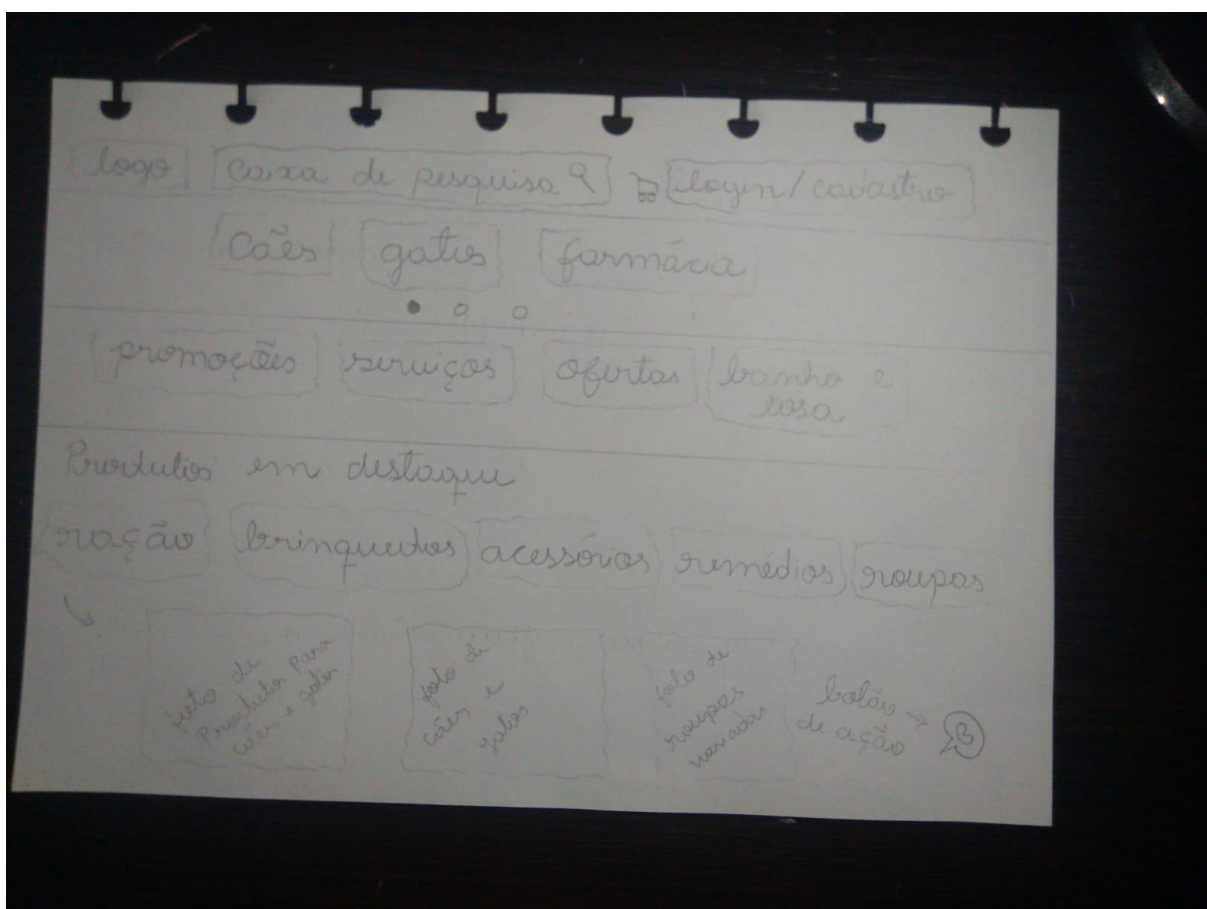 logo caixa de pesquisa login/cadastro
cães gatos farmácia
promoções serviços ofertas banho e
tosa
Produtos em destaque
ração brinquedos acessórios remédios roupas
foto de
Produtos para
cães e gatos
foto de
cães e
gatos
foto de
roupas
variadas
botão
de ação
B